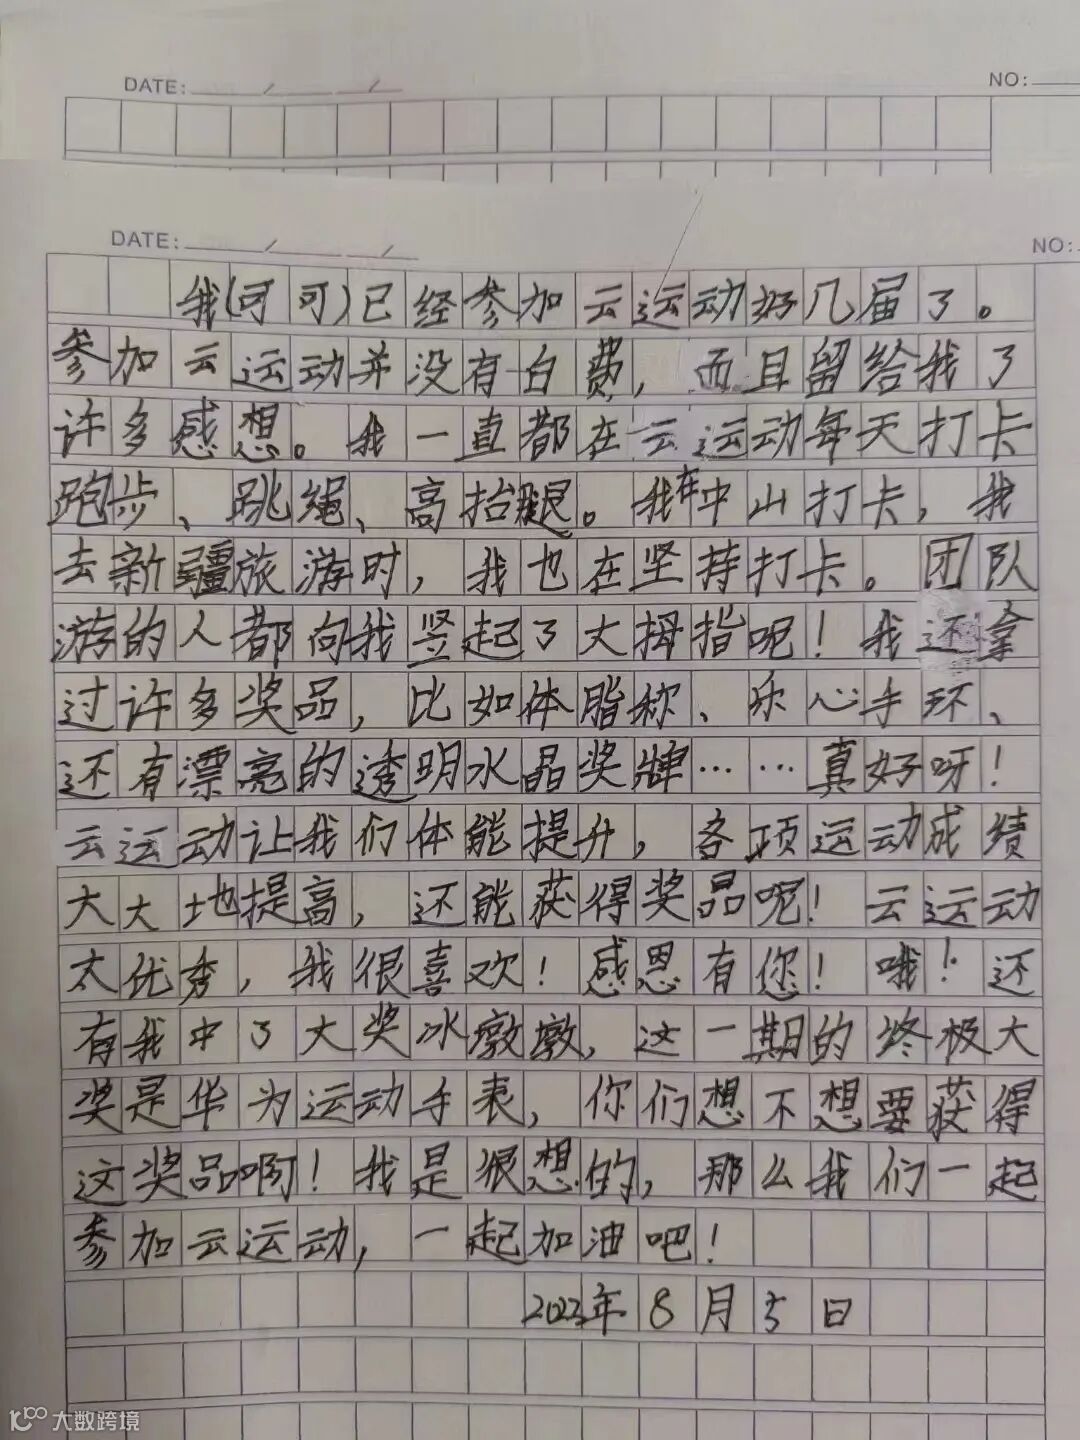 DATE: / /
NO:
DATE: / /
NO:
我(可可)已经参加云运动好几届了。
参加云运动并没有白费，而且留给我了
许多感想。我一直都在云运动每天打卡
跑步、跳绳、高抬腿。我在中山打卡，我
去新疆旅游时，我也在坚持打卡。团队
游的人都向我竖起了大拇指呢！我还拿
过许多奖品，比如体脂称、乐心手环、
还有漂亮的透明水晶奖牌……真好呀！
云运动让我们体能提升，各项运动成绩
大大地提高，还能获得奖品呢！云运动
太优秀，我很喜欢！感恩有您！哦！还
有我中了大奖冰墩墩，这一期的终极大
奖是华为运动手表，你们想不想要获得
这奖品啊！我是很想的，那么我们一起
参加云运动，一起加油吧！
2023年8月5日
大数跨境